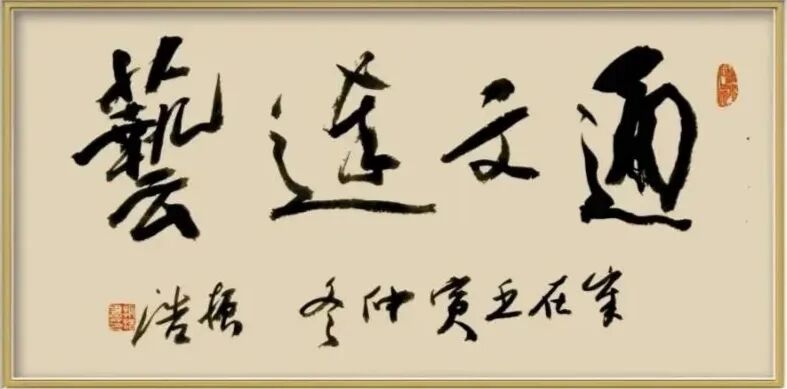 通文達藝
歲在壬寅仲冬 振浩